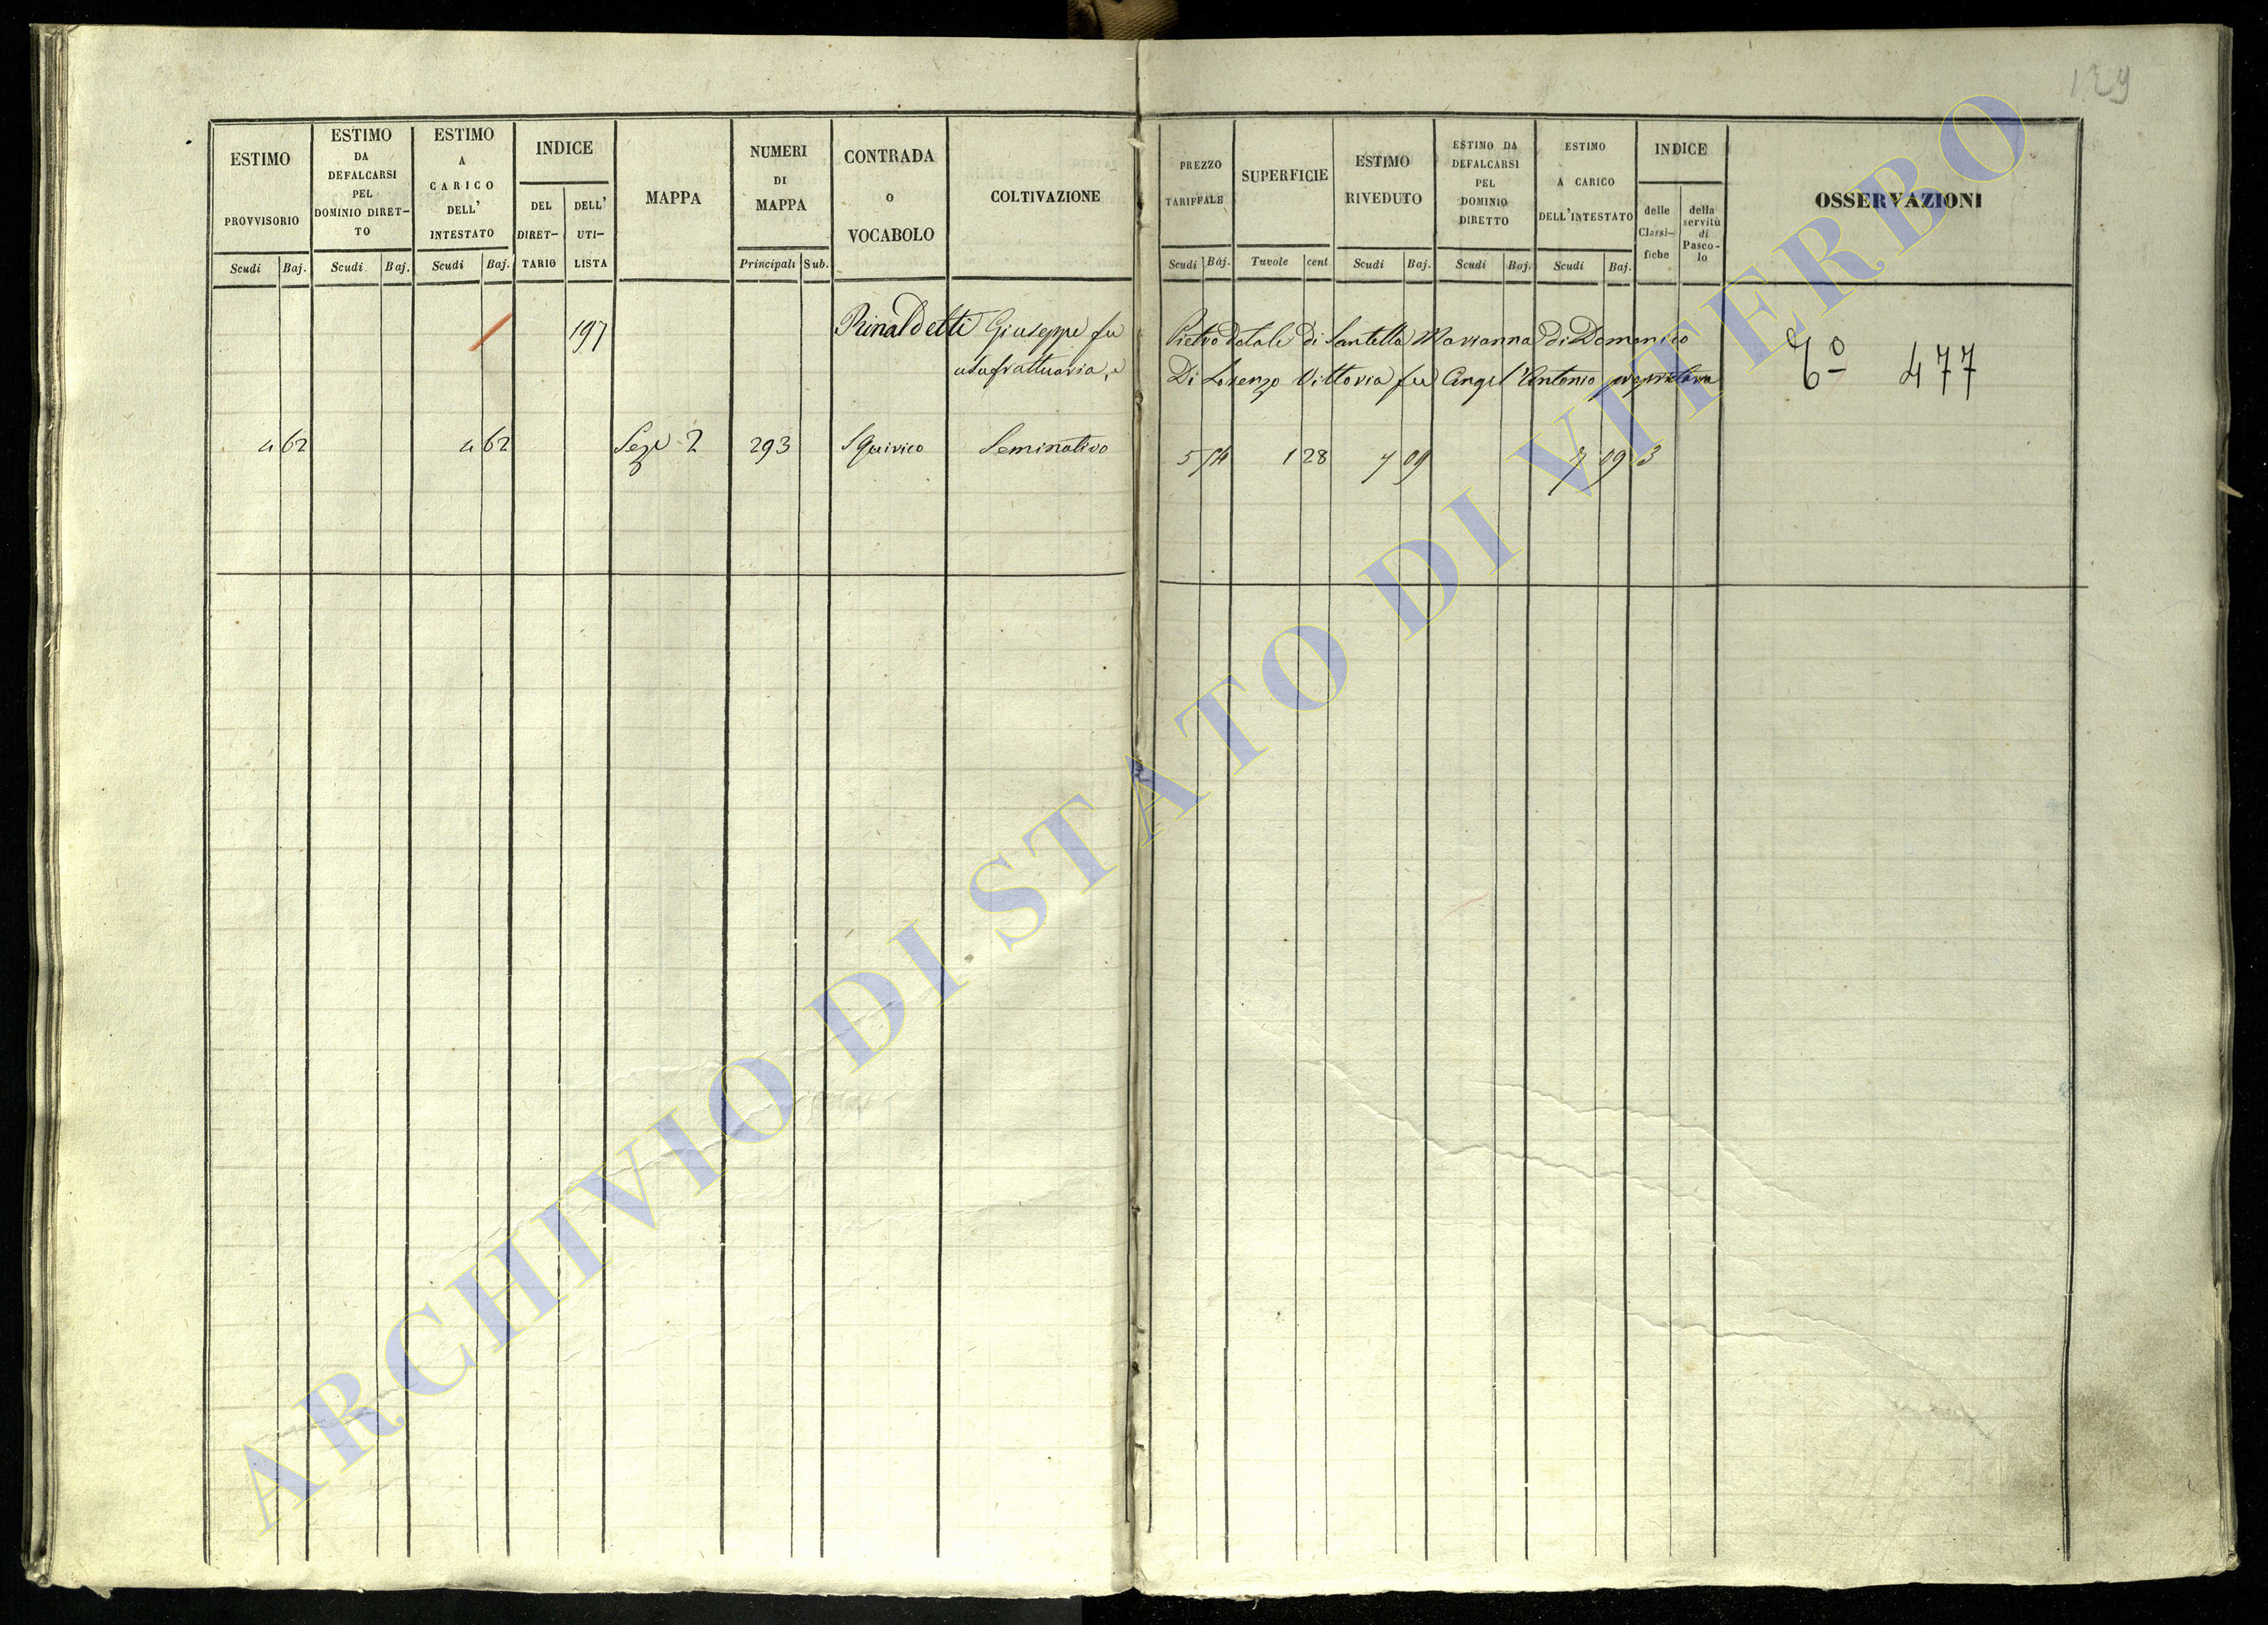 129
ESTIMO PROVVISORIO
Scudi Baj.
ESTIMO DA DEFALCARSI PEL DOMINIO DIRET-TO
Scudi Baj.
ESTIMO A CARICO DELL' INTESTATO
Scudi Baj.
INDICE
DEL DIRET-TARIO
DELL' UTI-LISTA
MAPPA
NUMERI DI MAPPA
Principali Sub.
CONTRADA o VOCABOLO
COLTIVAZIONE
PREZZO TARIFFALE
Scudi Baj.
SUPERFICIE
Tavole cent
ESTIMO RIVEDUTO
Scudi Baj.
ESTIMO DA DEFALCARSI PEL DOMINIO DIRETTO
Scudi Baj.
ESTIMO A CARICO DELL'INTESTATO
Scudi Baj.
INDICE
delle Classi-fiche
della servitù di Pasco-lo
OSSERVAZIONI
197 Rinaldetti Giuseppe fu Pietro Dotale di Santella Marianna di Domenico
usufruttuaria, e Di Lorenzo Vittoria fu Angel'Antonio proprietaria
6º 477
4 62 4 62 Sez 2 293 S Quirico Seminativo 5 54 1 28 7 09 7 09 3
ARCHIVIO DI STATO DI VITERBO